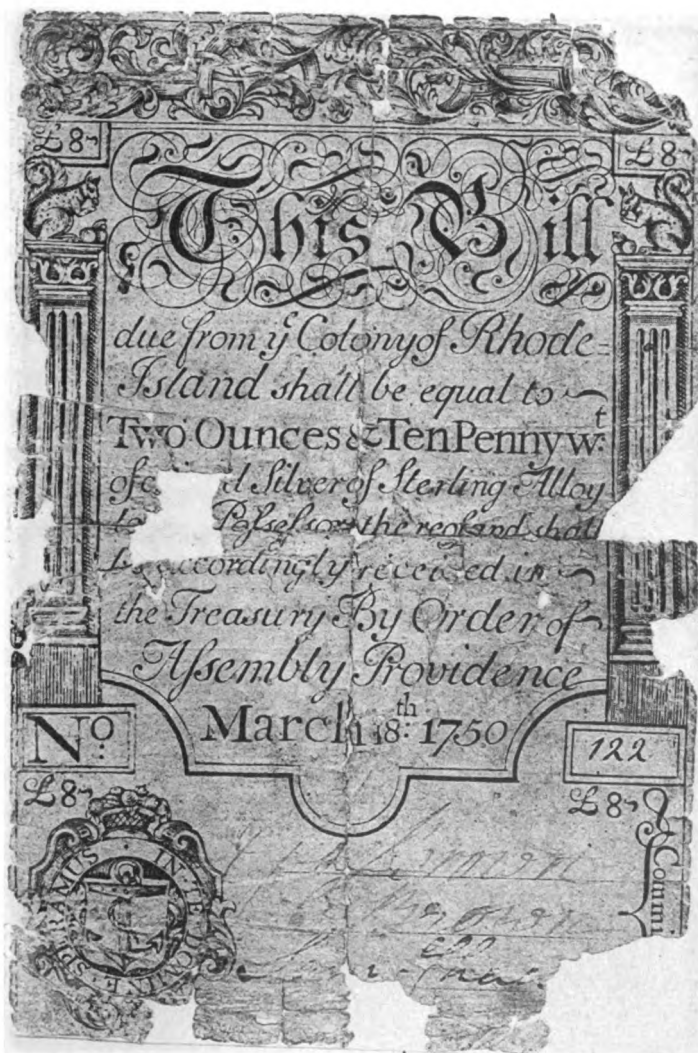 £8 £8
This Bill
due from yᵉ Colony of Rhode=
Island shall be equal to
Two Ounces & Ten Pennywᵗ:
of d Silver of Sterling Alloy
Poſseſsor thereof and shall
be accordingly received in
the Treasury By Order of
Aſsembly Providence
March 18ᵗʰ: 1750
Nᵒ. 122
£8 £8
IN TE DOMINE SPERAMUS
Commi